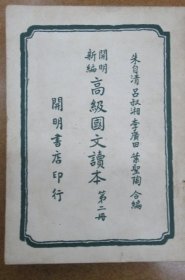 朱自清 呂叔湘 李廣田 葉聖陶 合編
開明新編
高級國文讀本 第二冊
開明書店印行